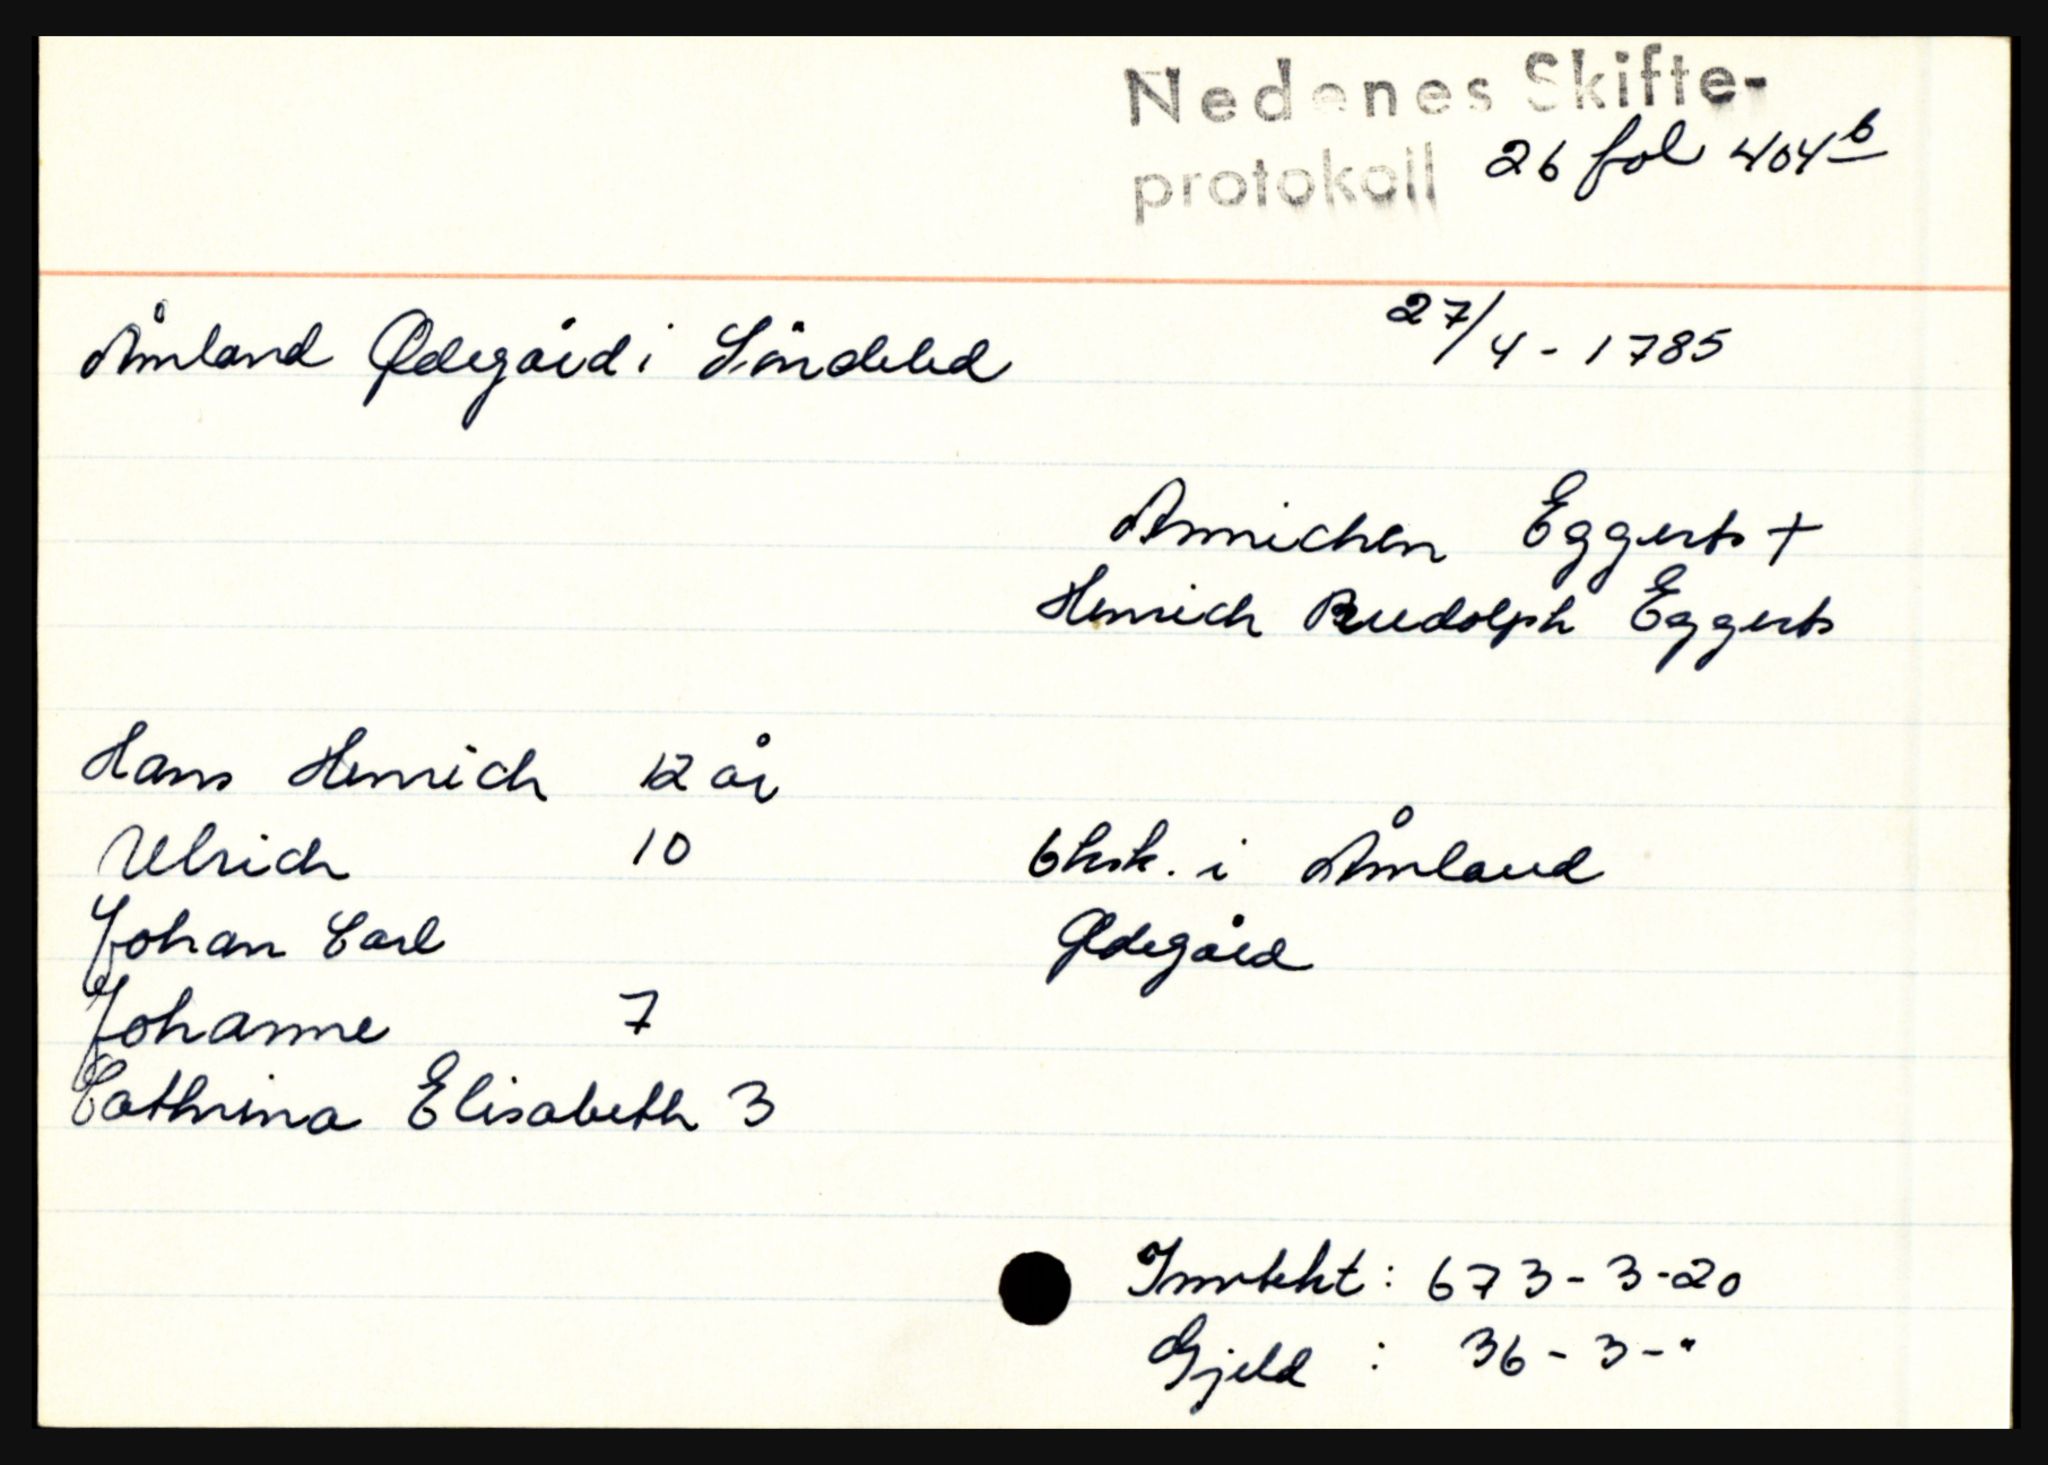 Nedenes Skifte-
protokoll 26 fol 404b
Åmland Ødegård i Søndeled 27/4 - 1785
Annichen Eggerts +
Henrich Rudolph Eggerts
Hans Henrich 12 år
Ulrich 10 6 hsk. i Åmland
Johan Carl Ødegård
Johanne 7
Cathrina Elisabeth 3
Inntekt : 673 - 3 - 20
Gjeld : 36 - 3 - "